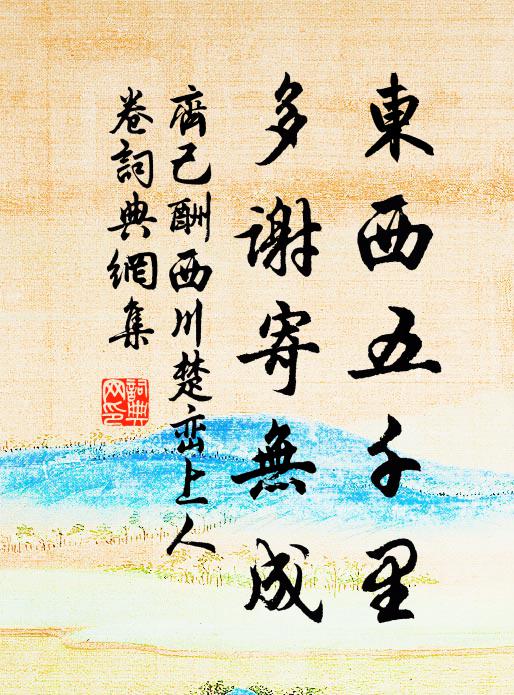 東西五千里
多謝寄無成
齊己酬西川楚巒上人
卷詞典網集
詞典网印